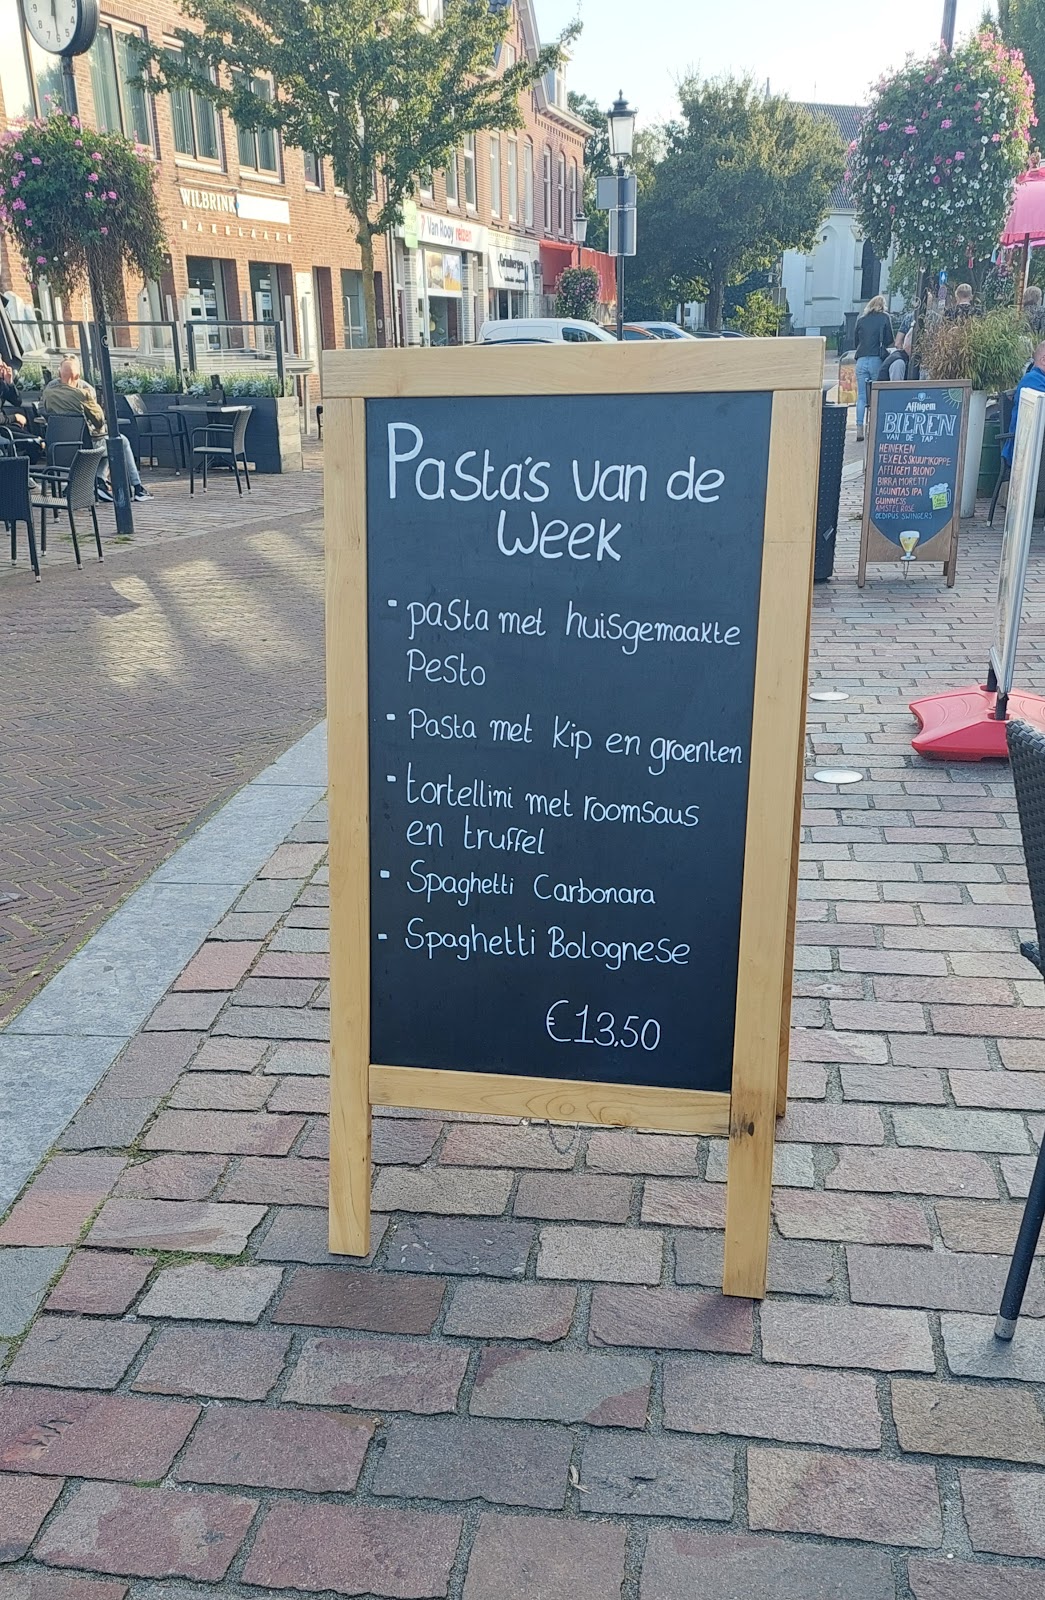 WILBRINK
MAKELAARS
Van Rooy reizen
Pasta's van de
Week
- pasta met huisgemaakte
Pesto
- Pasta met Kip en groenten
- tortellini met roomsaus
en truffel
- Spaghetti Carbonara
- Spaghetti Bolognese
€13,50
Affligem
BIEREN
VAN DE TAP
HEINEKEN
TEXELS SKUUMKOPPE
AFFLIGEM BLOND
BIRRA MORETTI
LAGUNITAS IPA
GUINNESS
AMSTEL ROSE
OEDIPUS SWINGERS